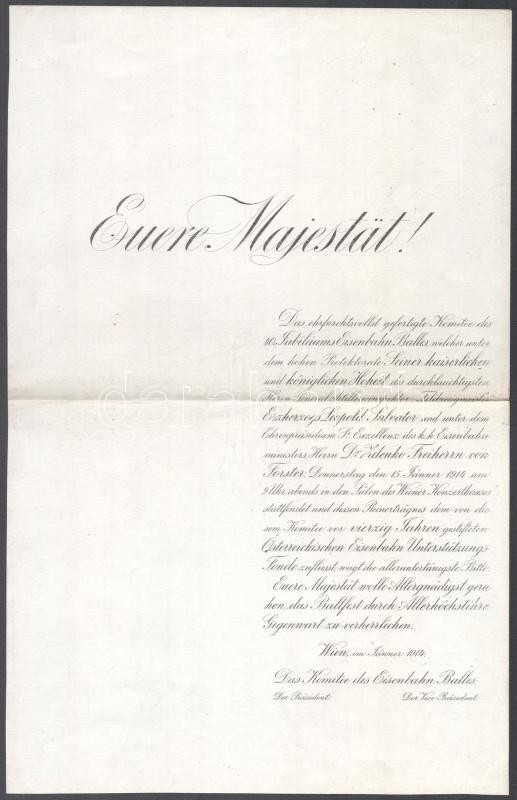 Euere Majestät!
Das ehrfurchtsvollst gefertigte Komitee des
40. Jubiläums Eisenbahn Balles, welcher unter
dem hohen Protektorate Seiner kaiserlichen
und königlichen Hoheit des durchlauchtigsten
Herrn General Artillerieinspektor Feldzeugmeister
Erzherzogs Leopold Salvator und unter dem
Ehrenpräsidium Sr. Exzellenz des k.k. Eisenbahn
ministers Herrn Dr. Zdenko Freiherrn von
Forster, Donnerstag den 15. Jänner 1914 um
9 Uhr abends in den Sälen des Wiener Konzerthauses
stattfindet und dessen Reinerträgnis dem von die
sem Komitee vor vierzig Jahren gestifteten
Österreichischen Eisenbahn Unterstützungs
Fonde zufliesst, wagt die alleruntertänigste Bitte:
Euere Majestät wolle Allergnädigst geru
hen, das Ballfest durch Allerhöchstihre
Gegenwart zu verherrlichen.
Wien, im Jänner 1914.
Das Komitee des Eisenbahn Balles:
Der Präsident: Der Vice-Präsident: